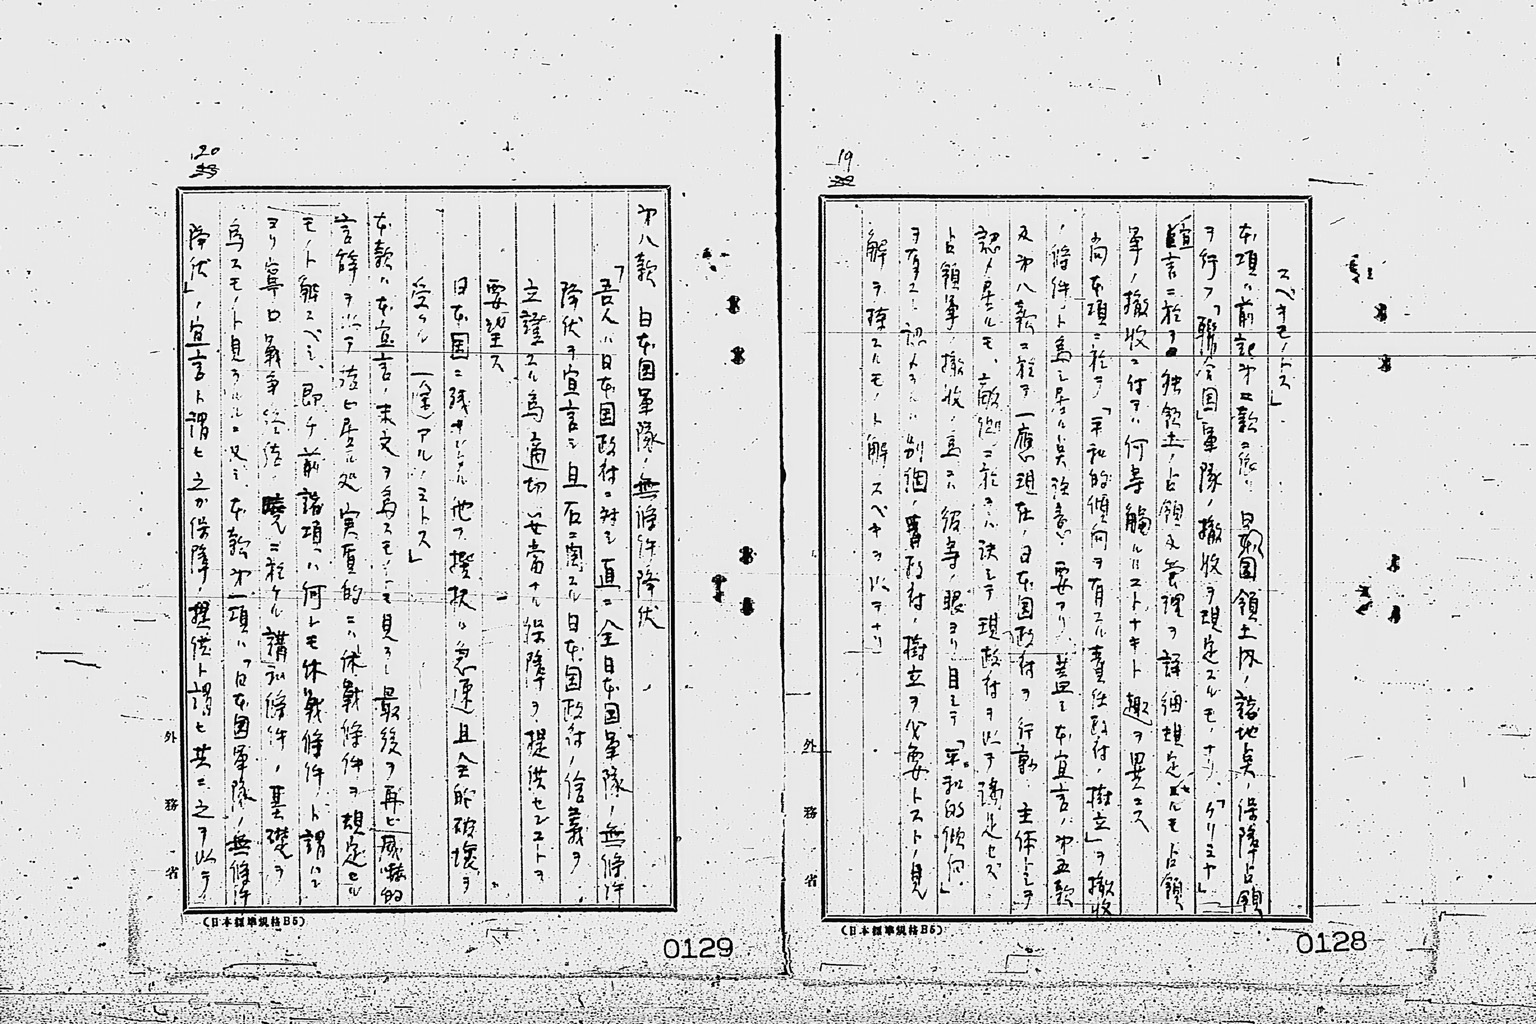 19
スベキモノトス」
本項ハ前記第二款ニ依ル日本国領土内ノ諸地点ノ保障占領
ヲ行フ「聯合国」軍隊ノ撤収ヲ規定スルモノナリ「クリミヤ」
宣言ニ於テ独領土ノ占領及管理ヲ詳細規定セルモ占領
軍ノ撤収ニ付テハ何等触ルルコトナキト趣ヲ異ニス
尚本項ニ於テ「平和的傾向ヲ有スル責任政府ノ樹立」ヲ撤収
ノ條件ト為シ居ルハ注意ヲ要ス 蓋シ本宣言ハ第五款
及第八款ニ於テ一應現在ノ日本国政府ヲ行動ノ主体トシテ
認メ居ルモ、敵側ニ於テハ決シテ現政府ヲ以テ満足セズ
占領軍ノ撤収ノ為ニハ彼等ノ眼ヨリ目シテ「平和的傾向」
ヲ有スト認メラルル別個ノ新政府ノ樹立ヲ必要トストノ見
解ヲ持スルモノト解スベキヲ以テナリ
外務省
(日本標準規格B5)
0128
20
第八款 日本国軍隊ノ無條件降伏
「吾人ハ日本国政府ニ対シ直ニ全日本国軍隊ノ無條件
降伏ヲ宣言シ且右ニ関スル日本国政府ノ信義ヲ
立證スル為適切妥当ナル保障ヲ提供センコトヲ
要望ス
日本国ニ残サレタル他ノ撰択ハ急速且全的破壊ヲ
受クル(ノ途)アルノミトス」
本款ハ本宣言ノ末文ヲ為スモノニモ見ラレ最後ヲ再ビ威嚇的
言辞ヲ以テ結ビ居ル処実質的ニハ休戦條件ヲ規定セル
モノト解スベシ、即チ前諸項ハ何レモ休戦條件ト謂ハン
ヨリ寧ロ戦争終結ノ暁ニ於ケル講和條件ノ基礎ヲ
為スモノト見ラルルニ反シ本款第一項ハ「日本国軍隊ノ無條件
降伏」ノ宣言ト謂ヒ之ガ保障ノ提供ト謂ヒ共ニ之ヲ以テ
外務省
(日本標準規格B5)
0129